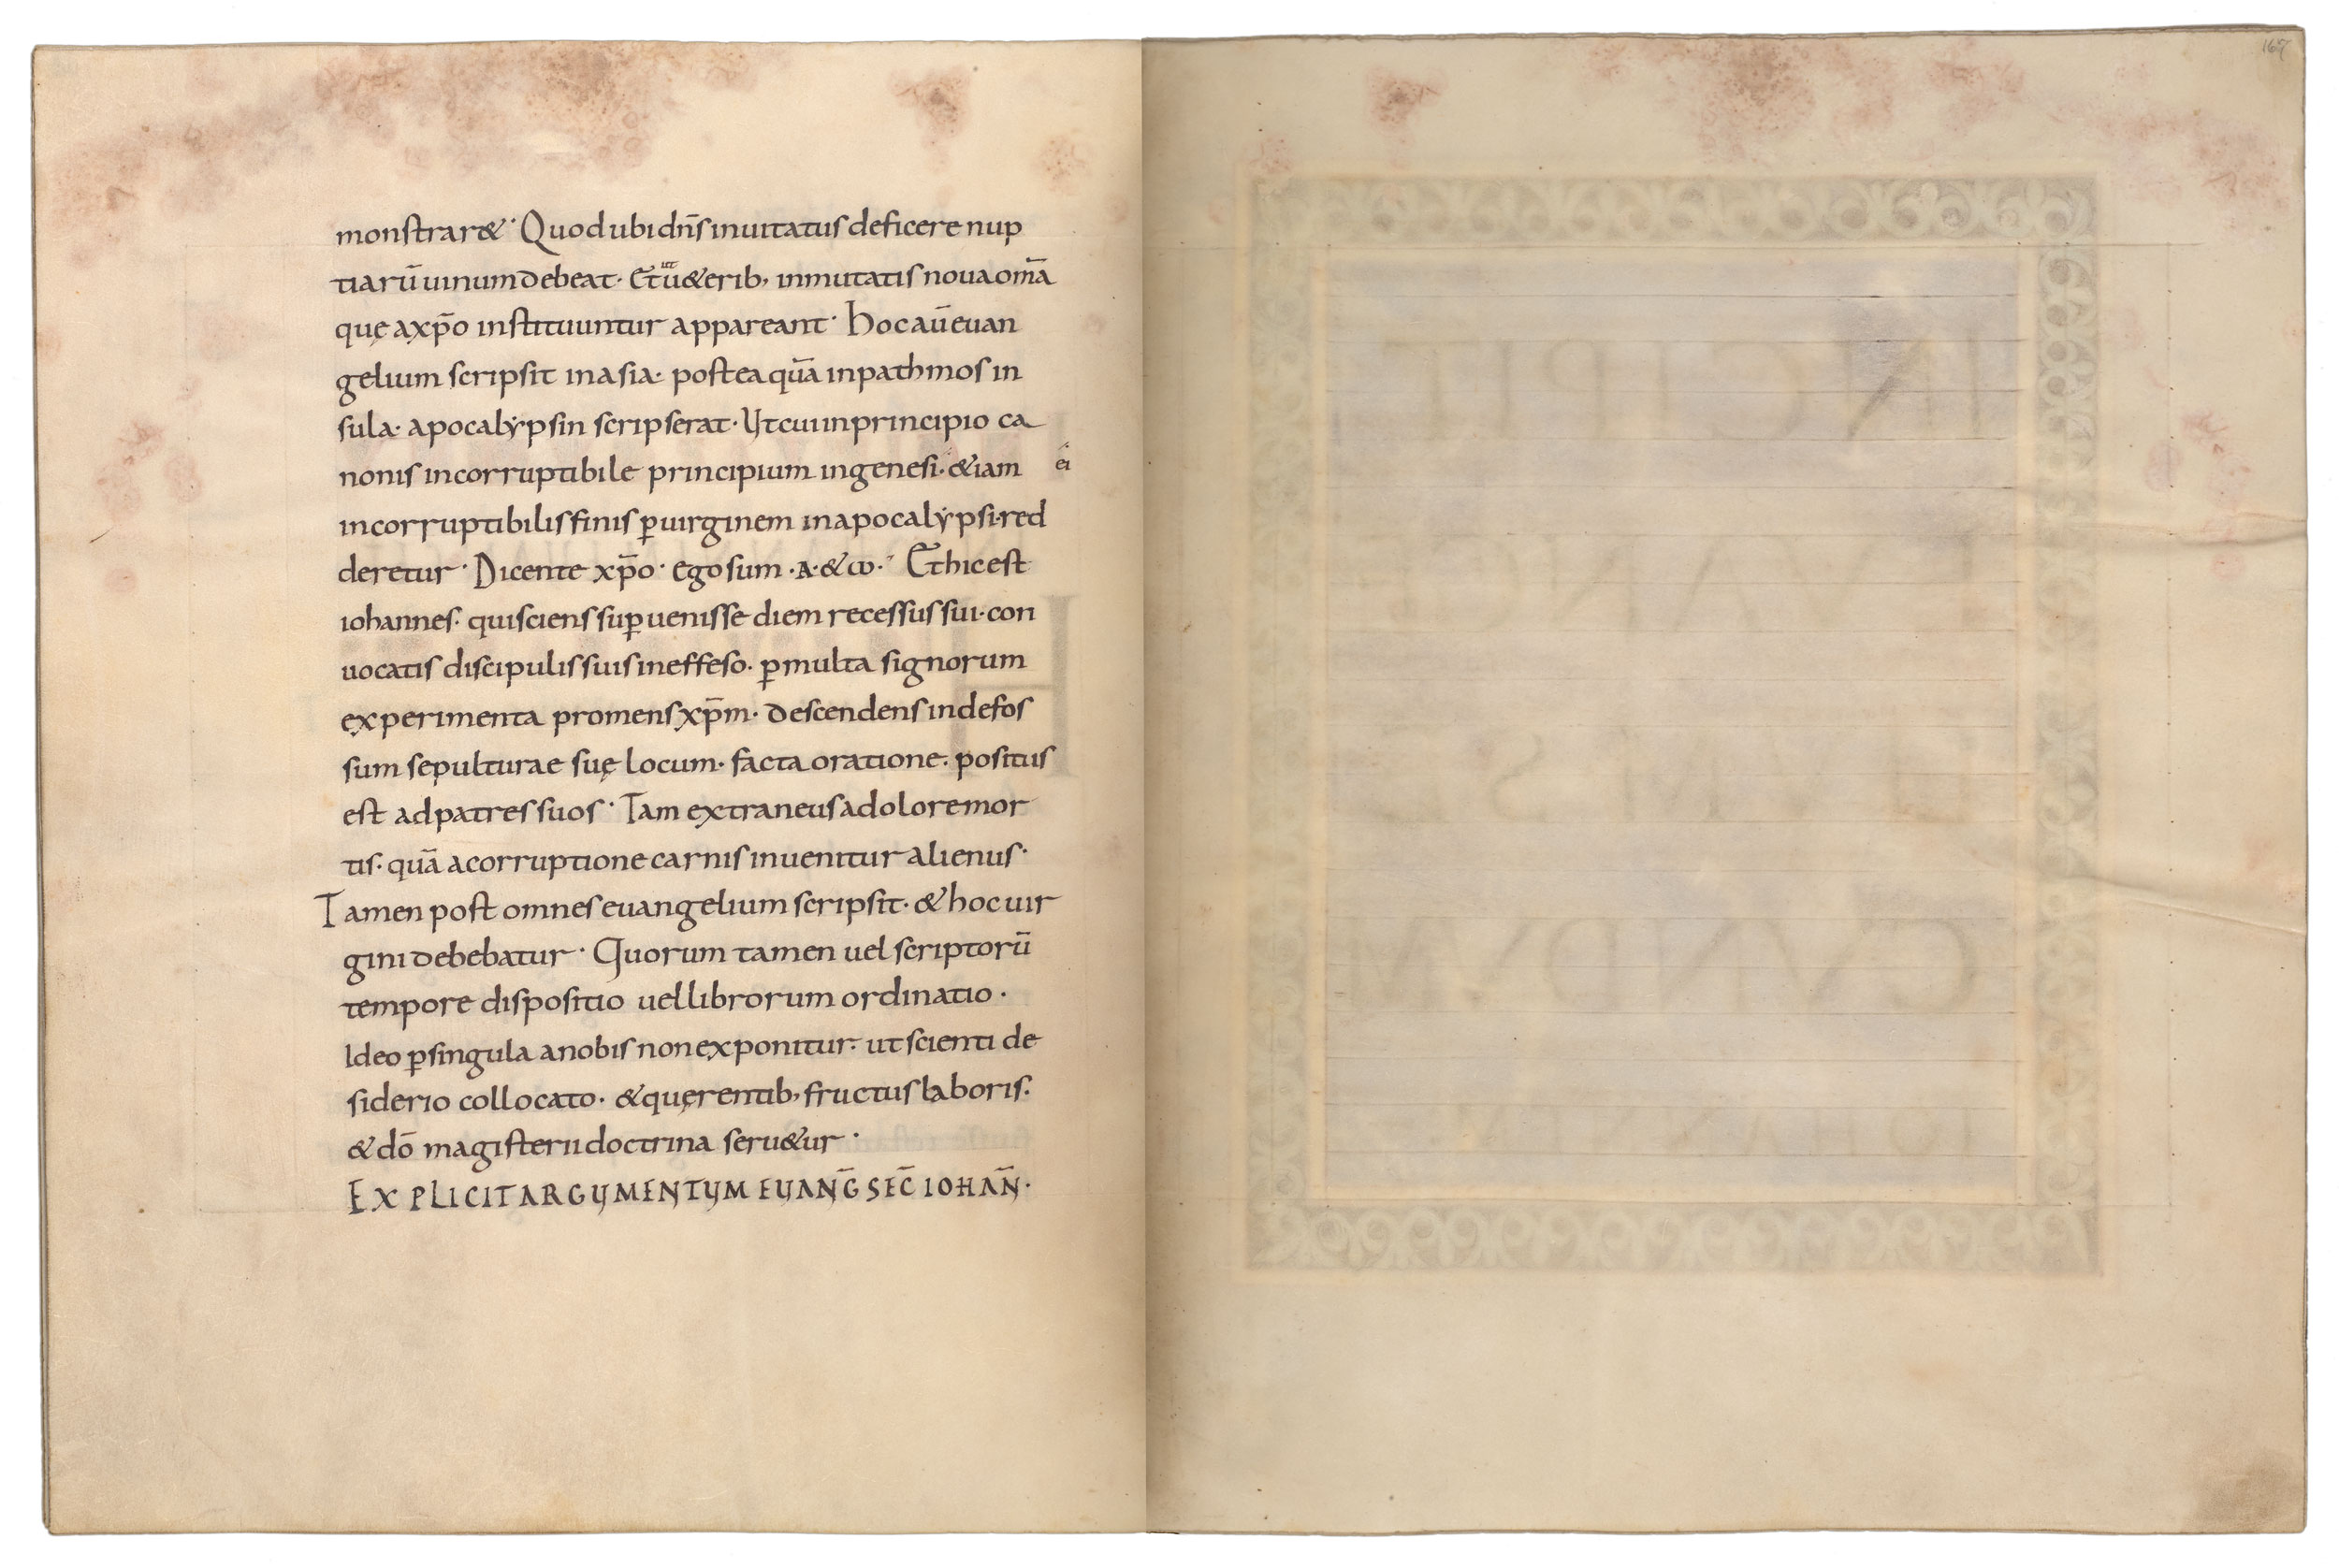 monstrar&· Quod ubi dn̄s inuitatus deficere nup
tiarū uinum debeat· Et ut ū&erib; inmutatis noua om̄a
quę a xp̄o instituuntur appareant· hoc aū euan
gelium scripsit in asia· postea quā in pathmos in
sula· apocalẏpsin scripserat· Ut cui in principio ca
nonis incorruptibile principium in genesi· &iam ēi
incorruptibilis finis ꝑ uirginem in apocalẏpsi· red
deretur· Dicente xp̄o· ego sum ·A·& ω· Et hic est
iohannes· qui sciens suꝑuenisse diem recessus sui· con
uocatis discipulis suis in effeso· ꝑ multa signorum
experimenta promens xp̄m· descendens in defos
sum sepulturae suę locum· facta oratione· positus
est ad patres suos· Tam extraneus a dolore mor
tis· quā a corruptione carnis inuenitur alienus·
Tamen post omnes euangelium scripsit· & hoc uir
gini debebatur· Quorum tamen uel scriptorū
tempore dispositio uel librorum ordinatio·
Ideo ꝑ singula a nobis non exponitur· ut scienti de
siderio collocato· & quęrentib; fructus laboris·
& dō magisterii doctrina seru&ur·
EXPLICIT ARGUMENTUM EUANḠ SEC̄ IOHAN̄·
167